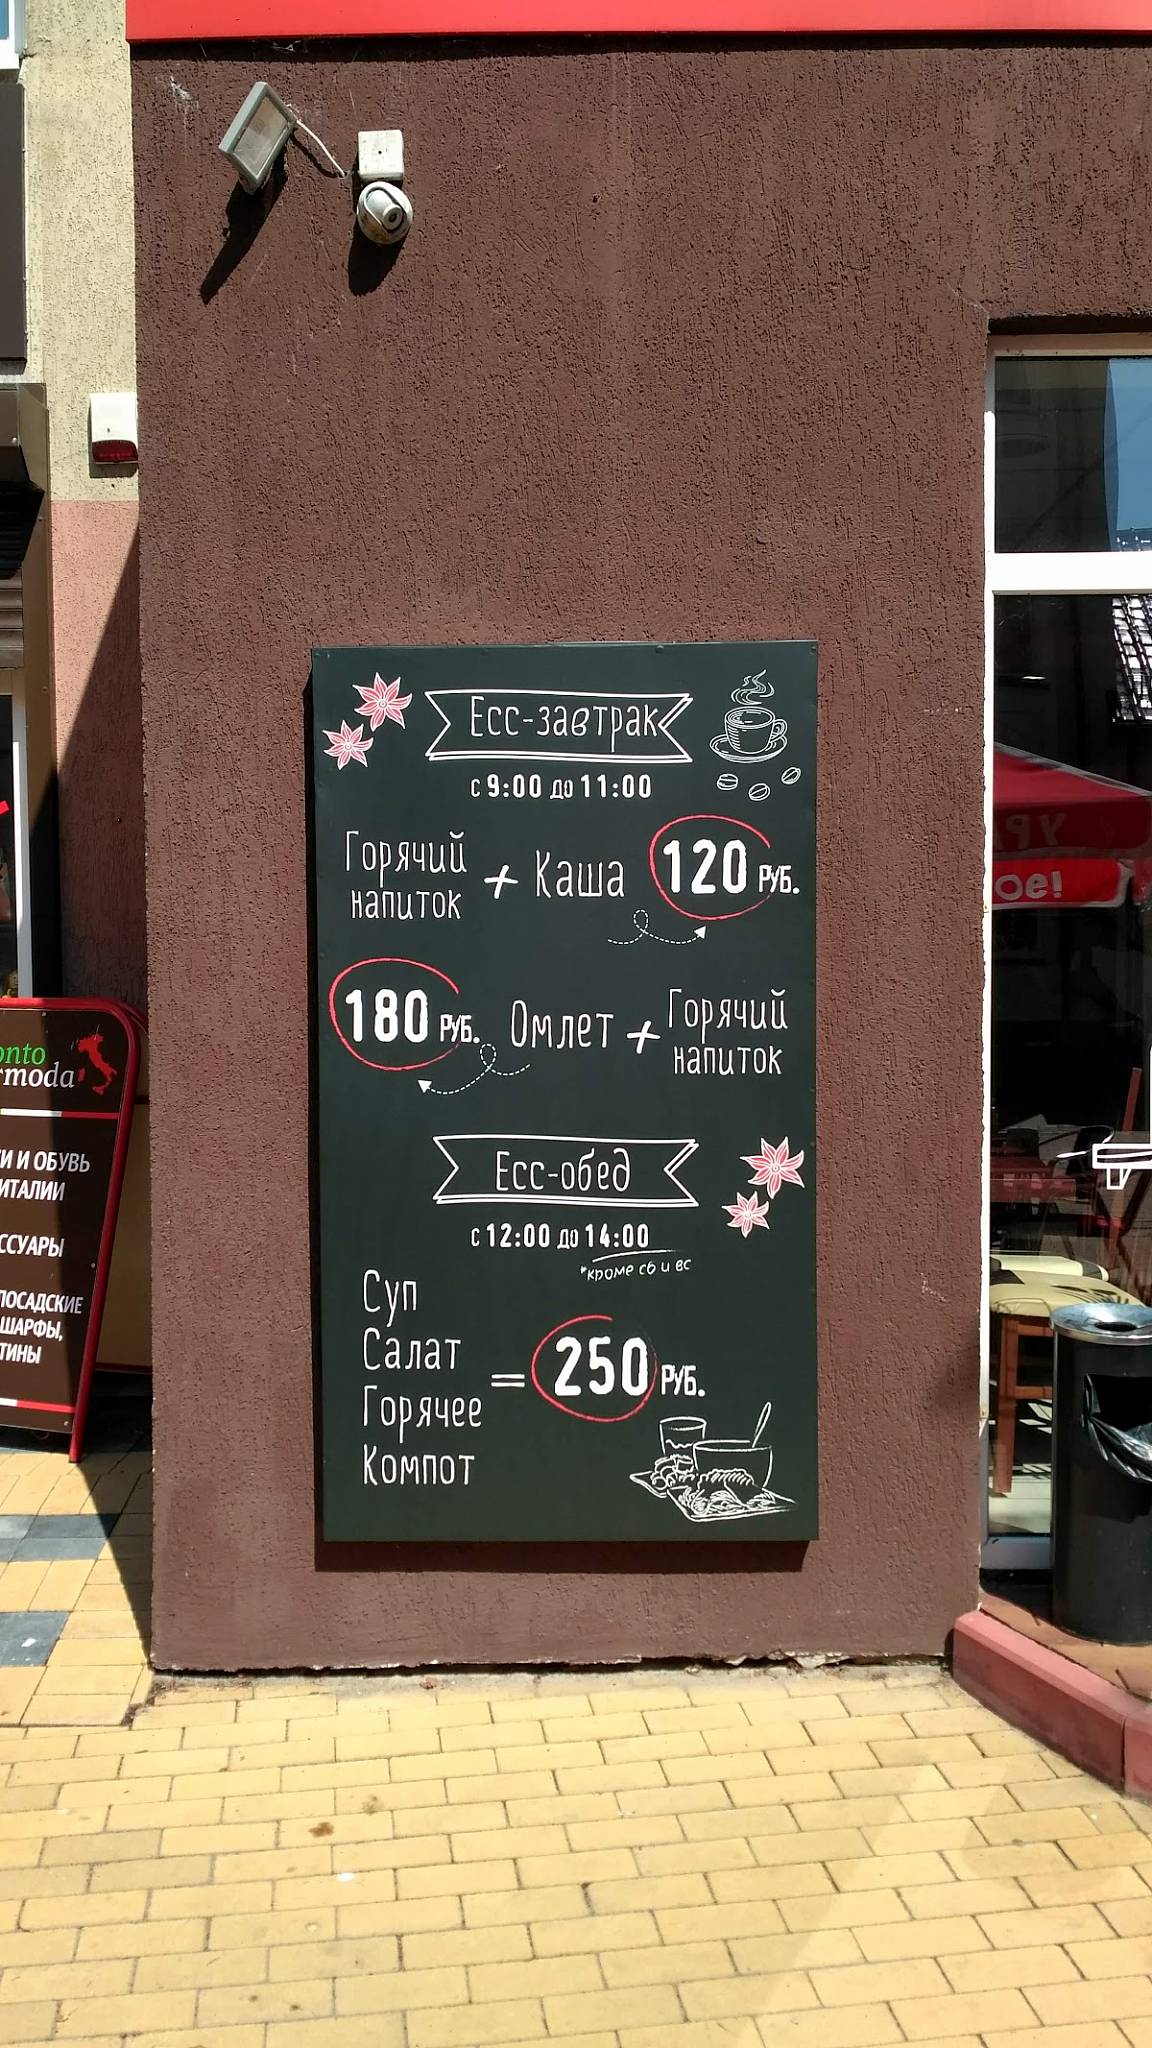 Есс-завтрак
с 9:00 до 11:00
Горячий напиток + Каша 120 РУБ.
180 РУБ. Омлет + Горячий напиток
Есс-обед
с 12:00 до 14:00
*кроме сб и вс
Суп
Салат
Горячее
Компот
= 250 РУБ.
onto
rmoda
И И ОБУВЬ
ИТАЛИИ
ССУАРЫ
ПОСАДСКИЕ
ШАРФЫ,
ТИНЫ
ое!